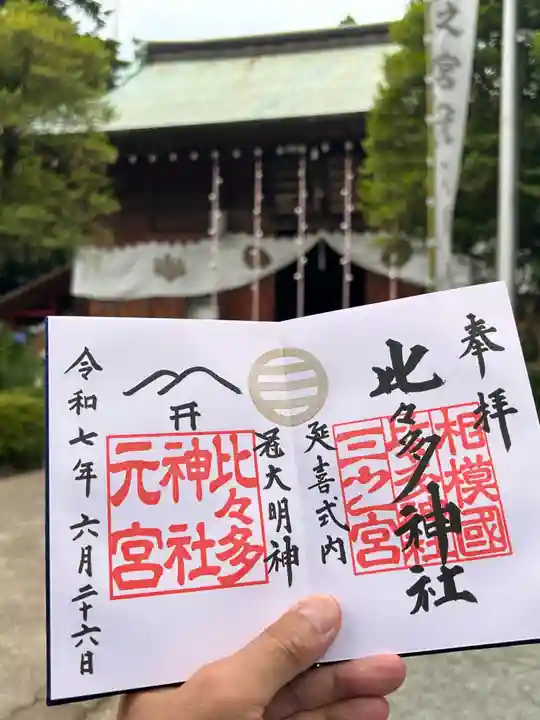 之宮
奉拝
相模國
比々多神社
三之宮
比々多神社
延喜式内
冠大明神
比々多
神社
元宮
令和七年 六月二十六日